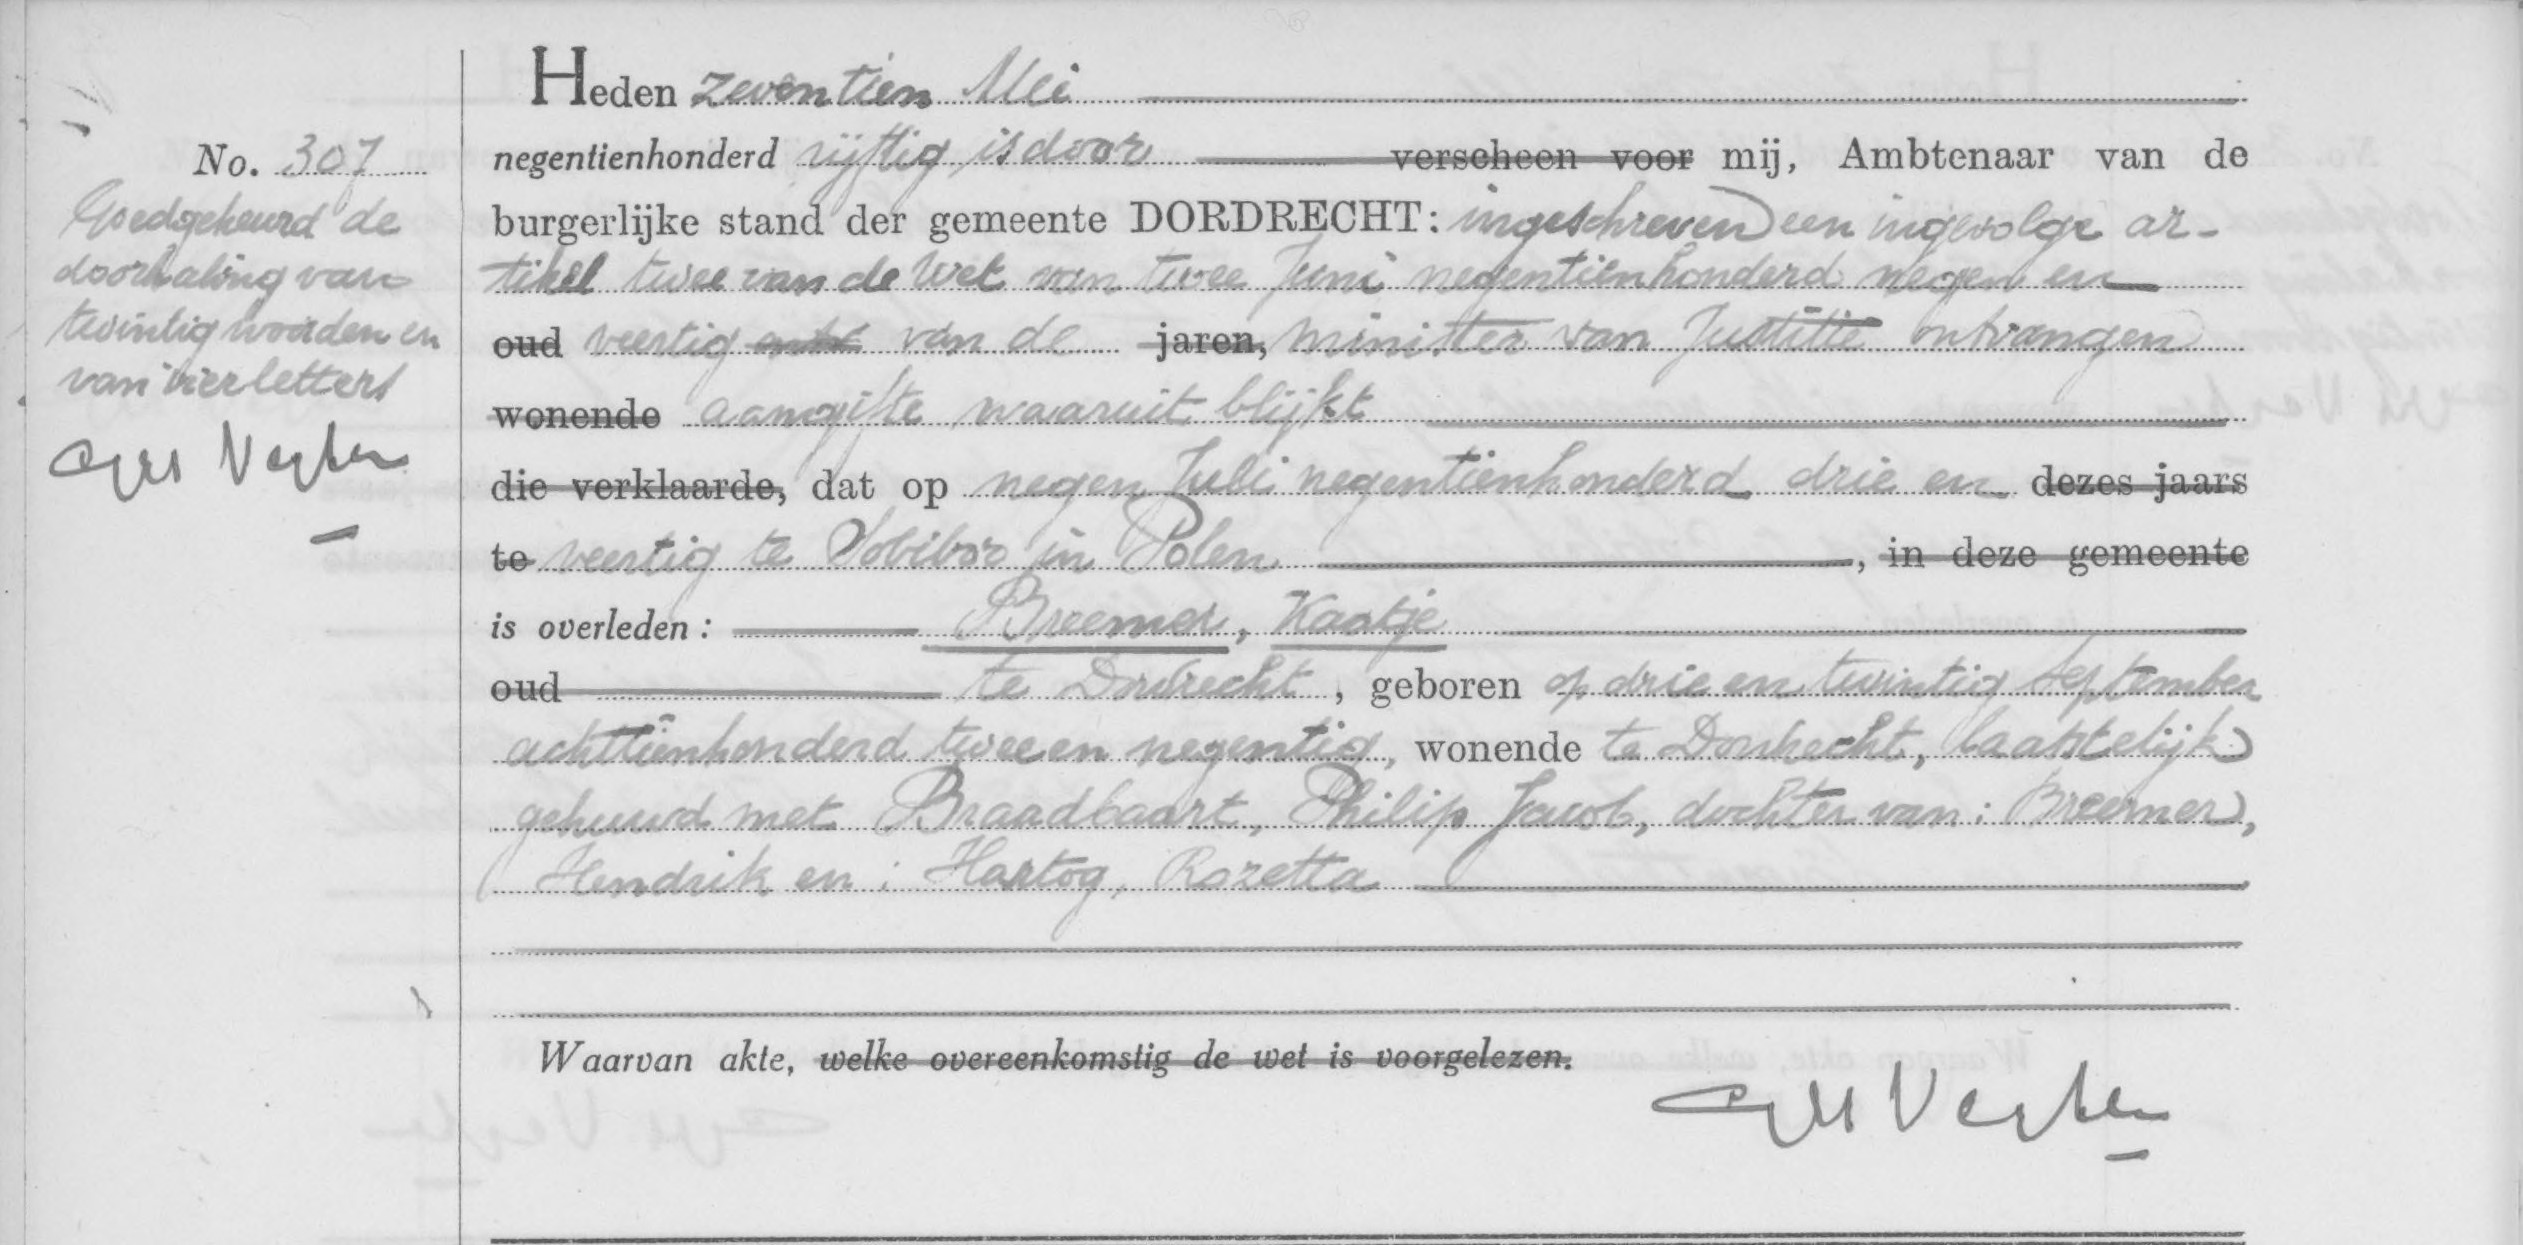 Heden zeventien Mei
No. 307
negentienhonderd vijftig is door verscheen voor mij, Ambtenaar van de
Goedgekeurd de
burgerlijke stand der gemeente DORDRECHT: ingeschreven een ingevolge ar-
doorhaling van
tikel twee van de Wet van twee Juni negentienhonderd negen en
twintig woorden en
oud veertig van de jaren, minister van Justitie ontvangen
van vier letters
wonende aangifte waaruit blijkt
die verklaarde, dat op negen Juli negentienhonderd drie en dezes jaars
te veertig te Sobibor in Polen, in deze gemeente
is overleden: Breemer, Kaatje
oud te Dordrecht, geboren op drie en twintig September
achttienhonderd twee en negentig, wonende te Dordrecht, laatstelijk
gehuwd met Braadbaart, Philip Jacob, dochter van: Breemer,
Hendrik en: Hartog, Rozetta
Waarvan akte, welke overeenkomstig de wet is voorgelezen.